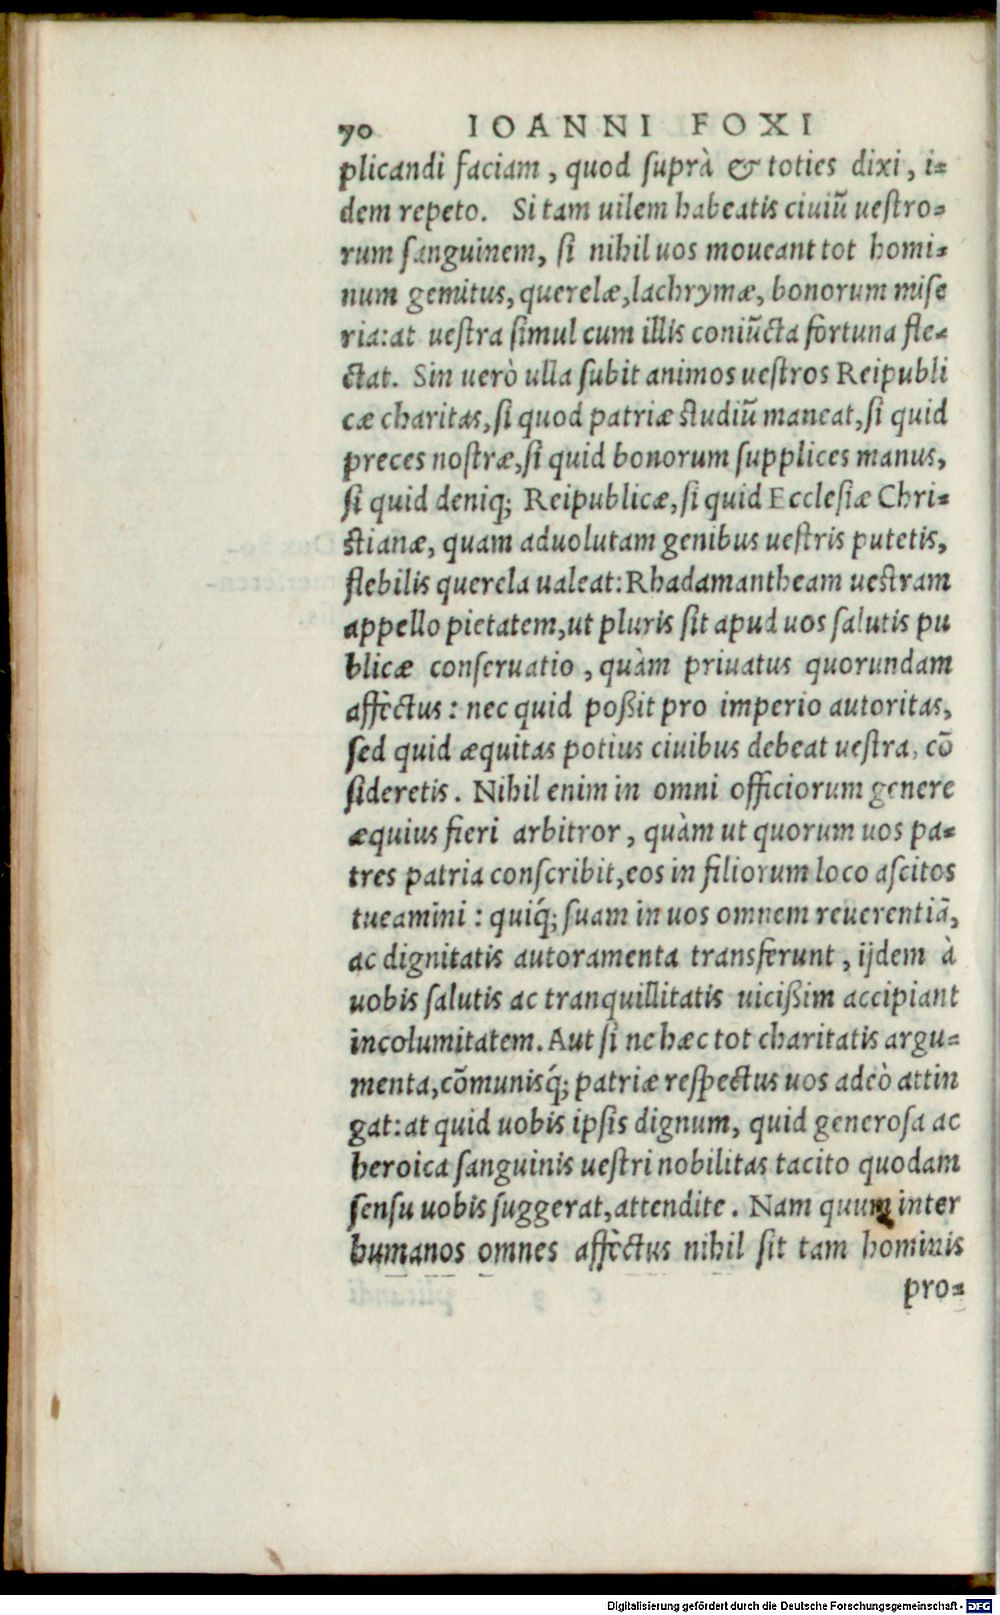 70 IOANNI FOXI
plicandi faciam, quod suprà & toties dixi, i-
dem repeto. Si tam uilem habeatis ciuiũ uestro-
rum sanguinem, si nihil uos moueant tot homi-
num gemitus, querelæ, lachrymæ, bonorum mise
ria: at uestra simul cum illis coniũcta fortuna fle-
ctat. Sin uerò ulla subit animos uestros Reipubli
cæ charitas, si quod patriæ studiũ maneat, si quid
preces nostræ, si quid bonorum supplices manus,
si quid deniq; Reipublicæ, si quid Ecclesiæ Chri-
stianæ, quam aduolutam genibus uestris putetis,
flebilis querela ualeat: Rhadamantheam uestram
appello pietatem, ut pluris sit apud uos salutis pu
blicæ conseruatio, quàm priuatus quorundam
affectus: nec quid poßit pro imperio autoritas,
sed quid æquitas potius ciuibus debeat uestra, cõ
sideretis. Nihil enim in omni officiorum genere
æquius fieri arbitror, quàm ut quorum uos pa-
tres patria conscribit, eos in filiorum loco ascitos
tueamini: quiq́; suam in uos omnem reuerentiã,
ac dignitatis autoramenta transferunt, ijdem à
uobis salutis ac tranquillitatis uicißim accipiant
incolumitatem. Aut si ne hæc tot charitatis argu-
menta, cõmunisq́; patriæ respectus uos adeò attin
gat: at quid uobis ipsis dignum, quid generosa ac
heroica sanguinis uestri nobilitas tacito quodam
sensu uobis suggerat, attendite. Nam quum inter
humanos omnes affectus nihil sit tam hominis
pro-
Digitalisierung gefördert durch die Deutsche Forschungsgemeinschaft - DFG